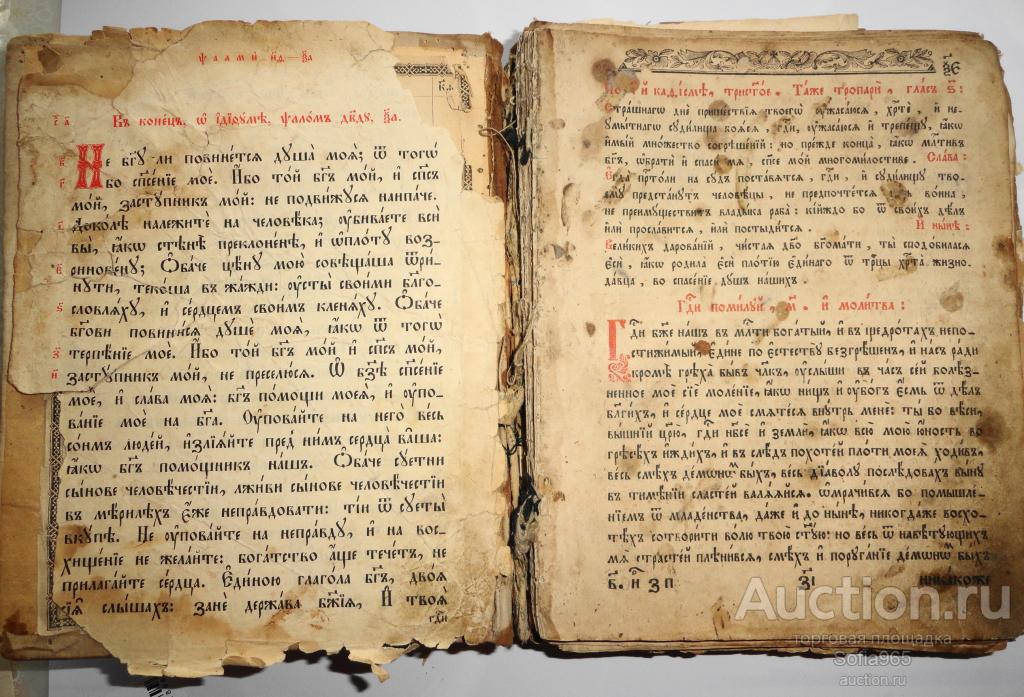 Въ конецъ, ѡ҆ і҆дїѳꙋмѣ, ѱало́мъ дв҃дꙋ, ѯ҃а.
Не бг҃ꙋ ли повине́тсѧ дꙋша̀ моѧ̀; ѿ тогѡ̀
бо сп҃се́нїе моѐ. И҆́бо то́й бг҃ъ мо́й, и҆ сп҃съ
мо́й, застꙋ́пникъ мо́й: не подви́жꙋсѧ наипа́че.
Доко́лѣ належитѐ на человѣ́ка; ᲂу҆бива́ете всѝ
вы̀, ꙗ҆́кѡ стѣнѣ̀ преклоне́нѣ, и҆ ѡ҆пло́тꙋ воз-
ринове́нꙋ; Ѻ҆ба́че цѣ́нꙋ мою̀ совѣща́ша ѿри́-
нꙋти, теко́ша въ жа́жди: ᲂу҆сты̀ свои́ми бл҃го-
словлѧ́хꙋ, и҆ се́рдцемъ свои́мъ кленѧ́хꙋ. Ѻ҆ба́че
бг҃ови повини́сѧ дꙋшѐ моѧ̀, ꙗ҆́кѡ ѿ тогѡ̀
терпѣ́нїе моѐ. И҆́бо то́й бг҃ъ мо́й и҆ сп҃съ мо́й,
застꙋ́пникъ мо́й, не преселю́сѧ. Ѡ҆ бз҃ѣ сп҃се́нїе
моѐ, и҆ сла́ва моѧ̀: бг҃ъ по́мощи моеѧ̀, и҆ ᲂу҆по-
ва́нїе моѐ на бг҃а. Оу҆пова́йте на него̀ ве́сь
со́нмъ люде́й, и҆злїѧ́йте пред̾ ни́мъ сердца̀ ва̑ша:
ꙗ҆́кѡ бг҃ъ помо́щникъ на́шъ. Ѻ҆ба́че сꙋ́етни
сы́нове человѣ́честїи, лжи́ви сы́нове человѣ́честїи
въ мѣри́лѣхъ є҆́же непра́вдовати: ті́и ѿ сꙋеты̀
вкꙋ́пѣ. Не ᲂу҆пова́йте на непра́вдꙋ, и҆ на вос-
хище́нїе не жела́йте: бога́тство а҆́ще тече́тъ, не
прилага́йте се́рдца. Є҆ди́ною глаго́ла бг҃ъ, двоѧ̑
сїѧ̑ слы́шахъ: занѐ держа́ва бж҃їѧ, И҆ твоѧ̀
гдⷭ҇и
каѳі́смѣ, трист҃о́е. Та́же тропари̑, гла́съ ѕ҃:
Стра́шнагѡ днѐ прише́ствїѧ твоегѡ̀ ᲂу҆жаса́юсѧ, хрⷭ҇тѐ, и҆ не-
ᲂу҆мы́тнагѡ сꙋди́лища боѧ́сѧ, гдⷭ҇и, ᲂу҆жаса́юсѧ и҆ трепе́щꙋ, ꙗ҆́кѡ
и҆мы́й мно́жество согрѣше́нїй: но пре́жде конца̀, ꙗ҆́кѡ млⷭ҇тивъ
бг҃ъ, ѡ҆братѝ и҆ сп҃сѝ мѧ̀, сп҃се мо́й многомл҃стиве. Сла́ва:
Є҆гда̀ прⷭ҇то́ли на сꙋ́дъ поста́вѧтсѧ, гдⷭ҇и, и҆ сꙋди́лищꙋ тво-
емꙋ̀ предста́нꙋтъ человѣ́цы, не предпочте́тсѧ во́ина,
не преимꙋ́ществитъ влады́ка раба̀: кі́йждо бо ѿ свои́хъ дѣ́лъ
и҆лѝ просла́витсѧ, и҆лѝ постыди́тсѧ. И҆ ны́нѣ:
Вели́кихъ дарова́нїй, чи́стаѧ дв҃о бг҃ома́ти, ты̀ сподо́биласѧ
є҆сѝ, ꙗ҆́кѡ родила̀ є҆сѝ пло́тїю є҆ди́наго ѿ трⷪ҇цы хрⷭ҇та̀ жизно-
да́вца, во спасе́нїе дꙋ́шъ на́шихъ.
Гдⷭ҇и поми́лꙋй, м҃. и҆ моли́тва:
Гдⷭ҇и бж҃е на́шъ въ млⷭ҇ти бога́тый, и҆ въ щедро́тахъ непо-
стижи́мый, є҆ди́не по є҆стествꙋ̀ безгрѣ́шенъ, и҆ на́съ ра́ди
кромѣ̀ грѣха̀ бы́въ чл҃къ, ᲂу҆слы́ши въ ча́съ се́й болѣ́з-
ненное моѐ сїѐ моле́нїе, ꙗ҆́кѡ ни́щъ и҆ ᲂу҆бо́гъ є҆́смь ѿ дѣ́лъ
бл҃ги́хъ, и҆ се́рдце моѐ смѧте́сѧ внꙋ́трь менѐ: ты́ бо вѣ́си,
вы́шнїй цр҃ю̀, гдⷭ҇и нб҃сѐ и҆ землѝ, ꙗ҆́кѡ всю̀ мою̀ ю҆́ность во
грѣсѣ́хъ и҆жди́хъ, и҆ въ слѣ́дъ по́хотей пло́ти моеѧ̀ ходи́въ,
ве́сь смѣ́хъ де́мѡнѡмъ бы́хъ, ве́сь дїа́волꙋ послѣ́довахъ вы́нꙋ
въ тимѣ́нїи сласте́й валѧ́ѧйсѧ. ѡ҆мрачи́всѧ бо помышле́-
нїемъ ѿ младе́нства, да́же и҆ до ны́нѣ, никогда́же восхо-
тѣ́хъ сотвори́ти во́лю твою̀ ст҃ꙋ́ю: но ве́сь ѿ навѣ́тꙋющихъ
мѧ̀ страсте́й плѣни́всѧ, смѣ́хъ и҆ порꙋга́нїе де́мѡнѡмъ бы́хъ
никако́же
Auction.ru
торговая площадка
Sofia965
auction.ru